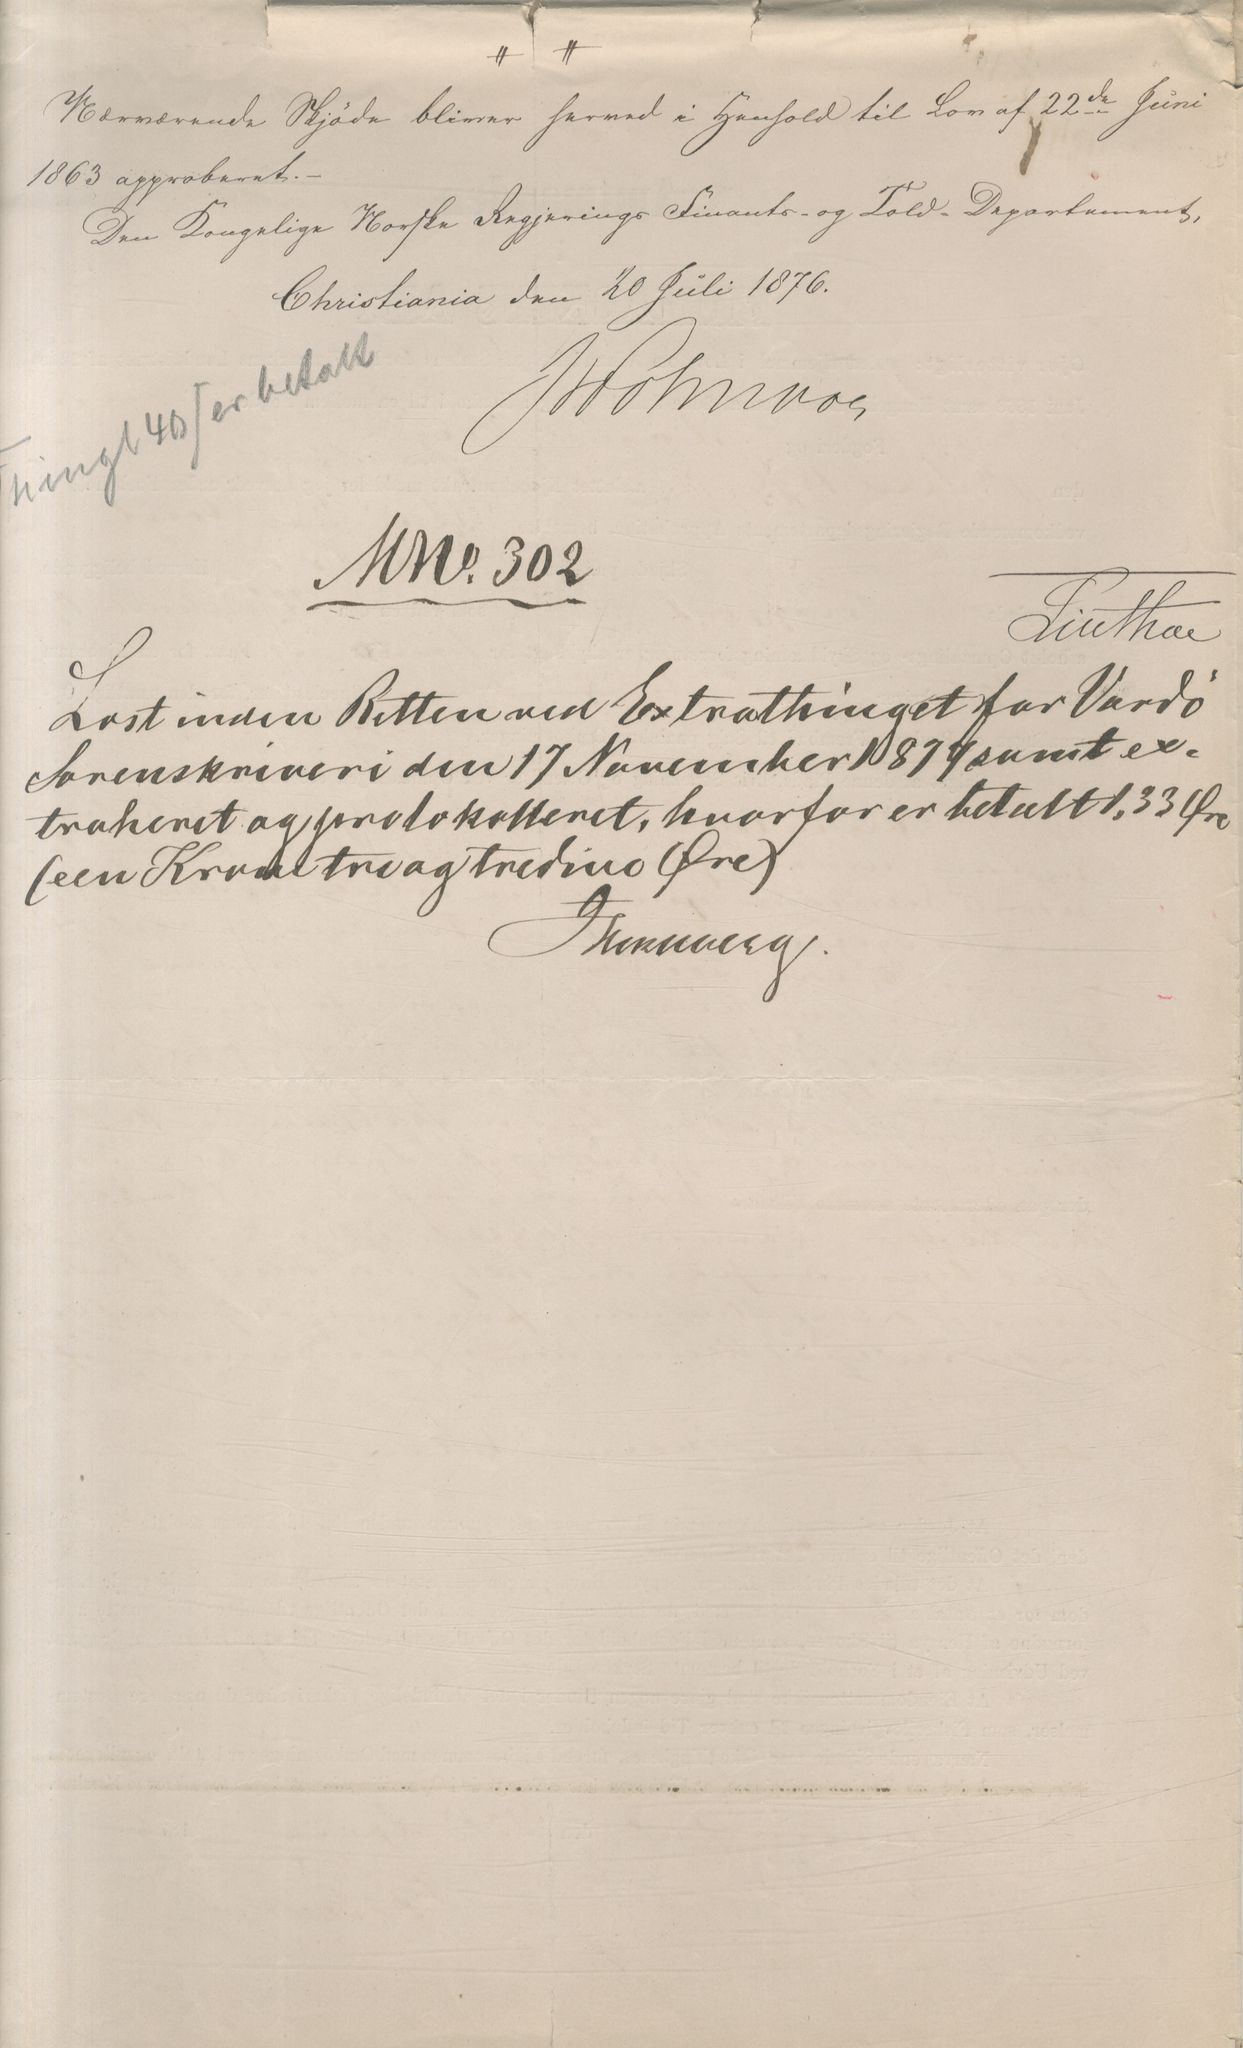 Nærværende Skjøde bliver herved i Henhold til Lov af 22de Juni
1863 approberet.-
Den Kongelige Norske Regjerings Finants- og Told-Departement,
Christiania den 20 Juli 1876.
er betalt
MNo. 302
Læst inden Retten ved Extrathinget for Vardö
Sorenskriveri den 17 November 1879 samt ex-
traheret og protokolleret, hvorfor er betalt 1,33 Øre
(een Krone tre og tredive Øre)